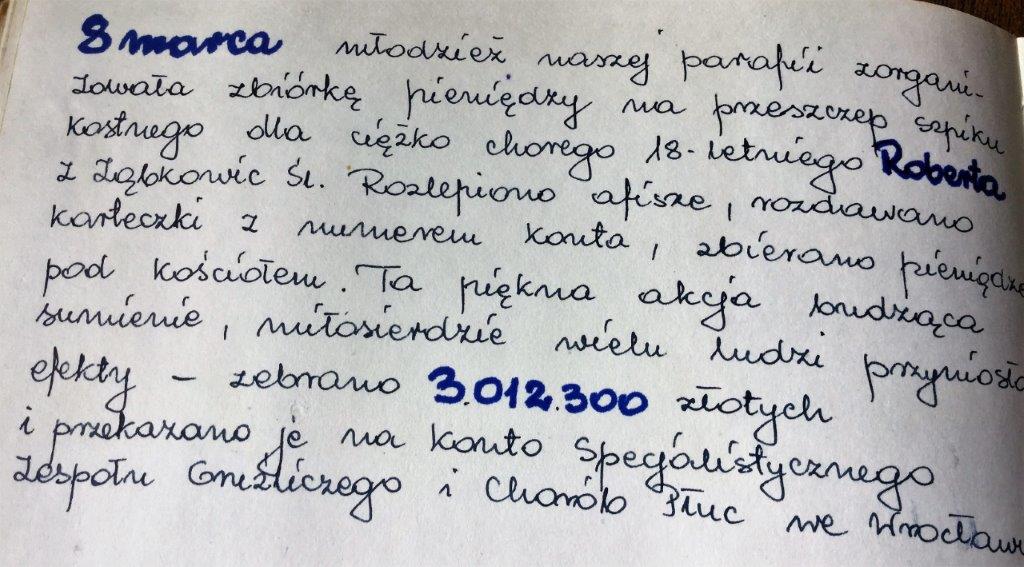 8 marca młodzież naszej parafii zorgani-
zowała zbiórkę pieniędzy na przeszczep szpiku
kostnego dla ciężko chorego 18-letniego Roberta
z Ząbkowic Śl. Rozlepiono afisze, rozdawano
karteczki z numerem konta, zbierano pieniądze
pod kościołem. Ta piękna akcja budząca
sumienie, miłosierdzie wielu ludzi przyniosła
efekty – zebrano 3.012.300 złotych
i przekazano je na konto Specjalistycznego
Zespołu Gruźliczego i Chorób Płuc we Wrocławiu